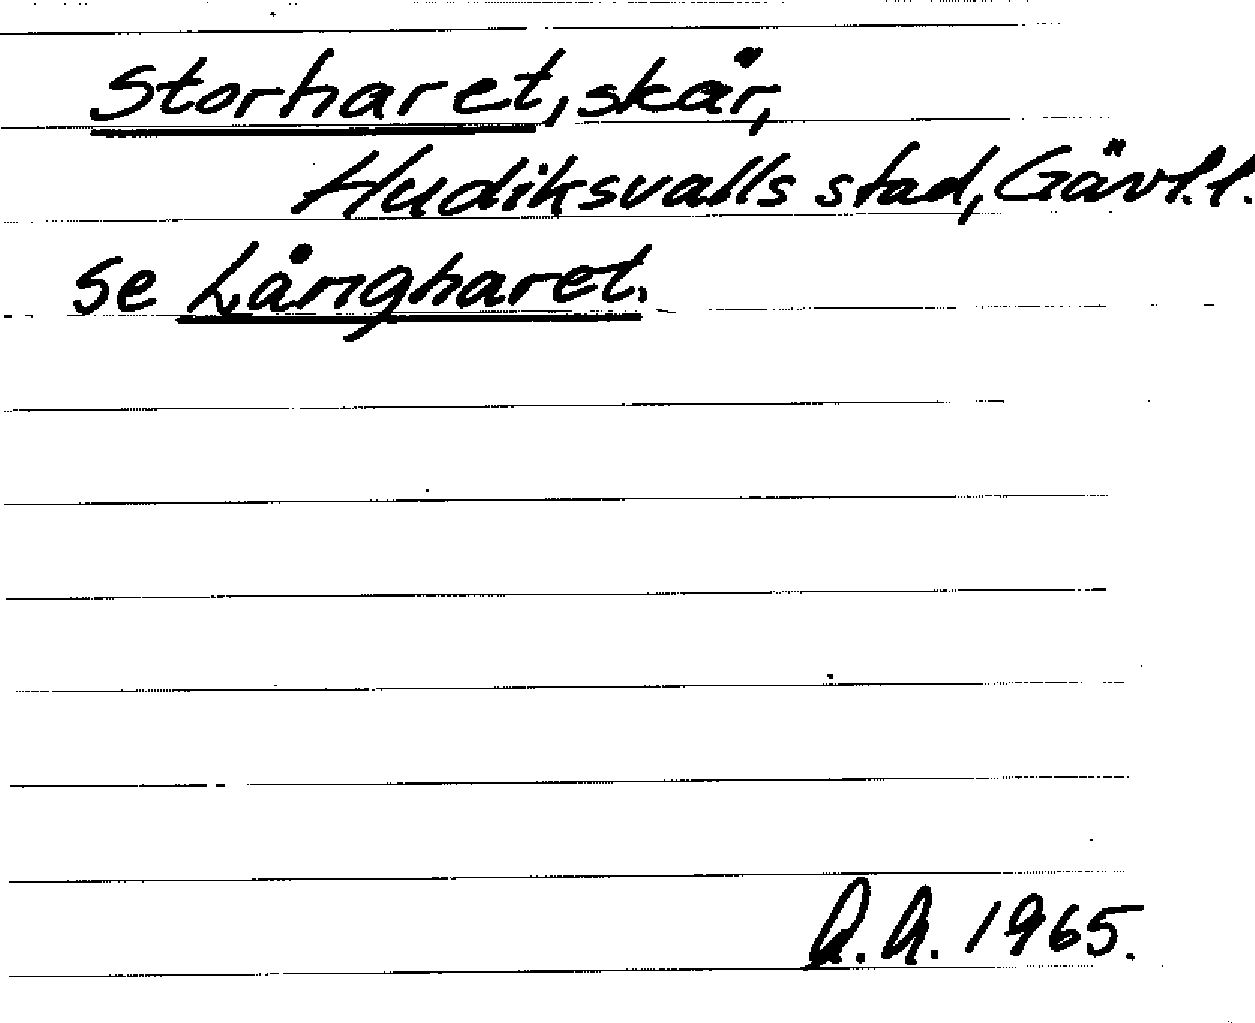 Storharet, skär,
Hudiksvalls stad, Gävl.l.
se Långharet.
A.A. 1965.